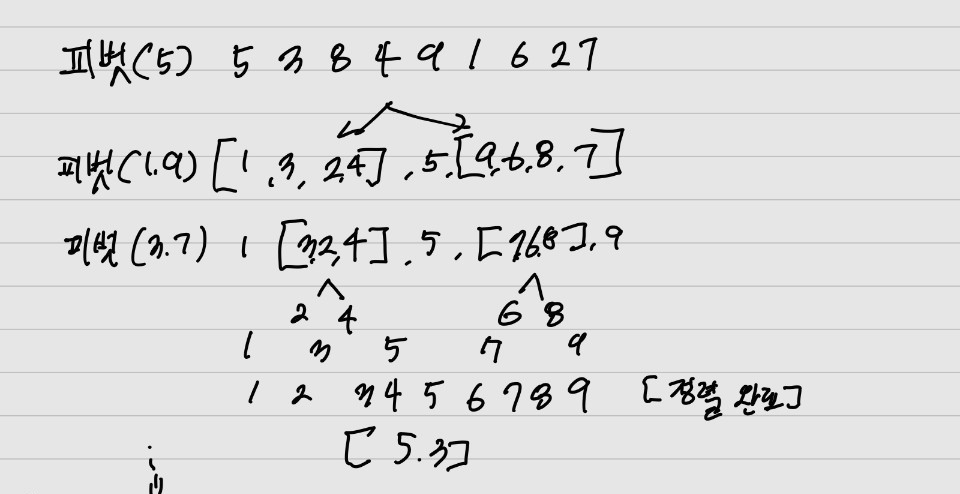 피벗(5) 5 3 8 4 9 1 6 2 7
피벗(1.9) [1, 3, 2,4], 5, [9,6,8, 7]
피벗(3.7) 1 [3,2,4], 5, [7,6,8], 9
2 4 6 8
1 3 5 7 9
1 2 3 4 5 6 7 8 9 [정렬 완료]
[5.3]